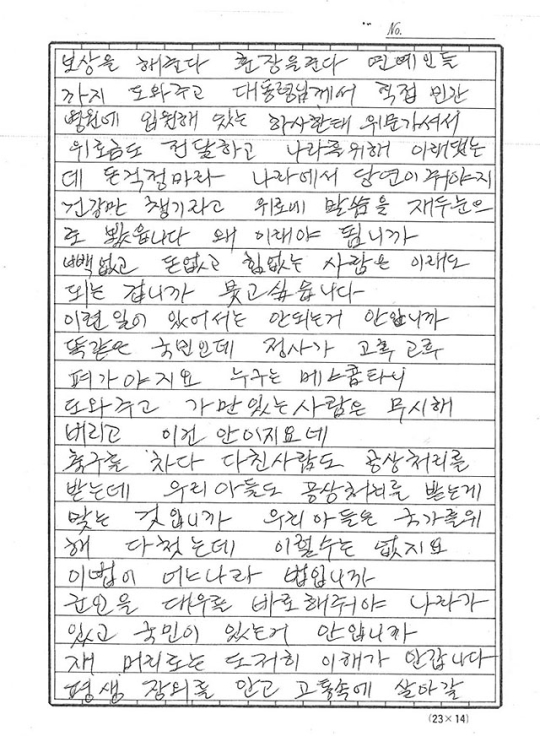 No.
보상을 해준다 훈장을준다 연예인들
까지 도와주고 대통령님께서 직접 민간
병원에 입원해 있는 하사한태 위문가셔서
위로금도 전달하고 나라를위해 이래됫는
데 돈걱정마라 나라에서 당연이줘야지
건강만 챙기라고 위로에 말씀을 재두눈으
로 봤읍니다 왜 이래야 됩니까
빽없고 돈없고 힘없는 사람은 이래도
되는 겁니까 묻고싶습니다
이런일이 있어서는 안되는거 안입니까
똑같은 국민인데 정사가 고록고록
펴가야지요 누구는 메스콤타니
도와주고 가만있는사람은 무시해
버리고 이건 안이지요네
축구를 차다 다친사람도 공상처리를
받는데 우리아들도 공상처리를 받는게
맞는 것입니까 우리아들은 국가를위
해 다첫는데 이럴수는 없지요
이법이 어느나라 법입니까
군인을 대우를 바로해줘야 나라가
있고 국민이 있는거 안입니까
재 머리로는 도저히 이해가 안갑니다
평생 장외를 안고 고통속에 살아갈
(23×14)